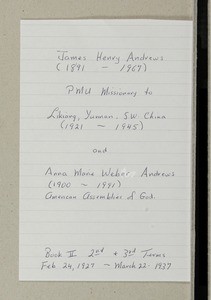 James Henry Andrews
(1891 ~ 1967)
PMU Missionary to
Likiang, Yunnan, S.W. China
(1921 ~ 1945)
and
Anna Marie Weber Andrews
(1900 ~ 1991)
American Assemblies of God.
Book II 2nd + 3rd Terms
Feb 24, 1927 ~ March 22-1937